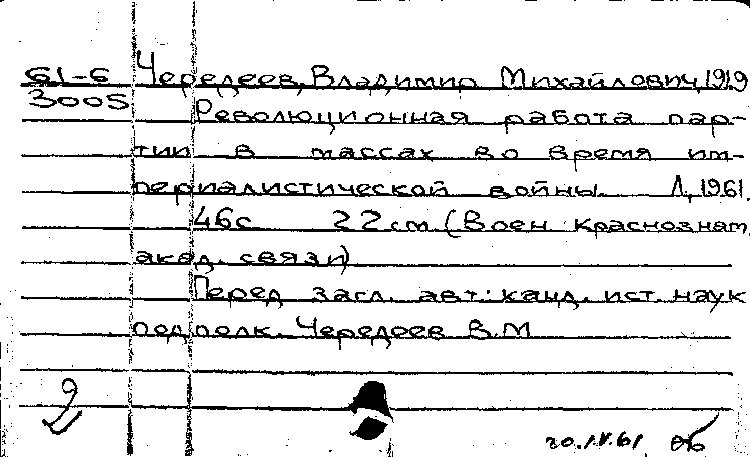 61-6 Чередеев, Владимир Михайлович, 1919
3005 Революционная работа пар-
тии в массах во время им-
периалистической войны. Л, 1961.
46с 22см. (Воен. краснознам.
акад. связи)
Перед загл. авт: канд. ист. наук
подполк. Чередеев В.М
20.IV.61